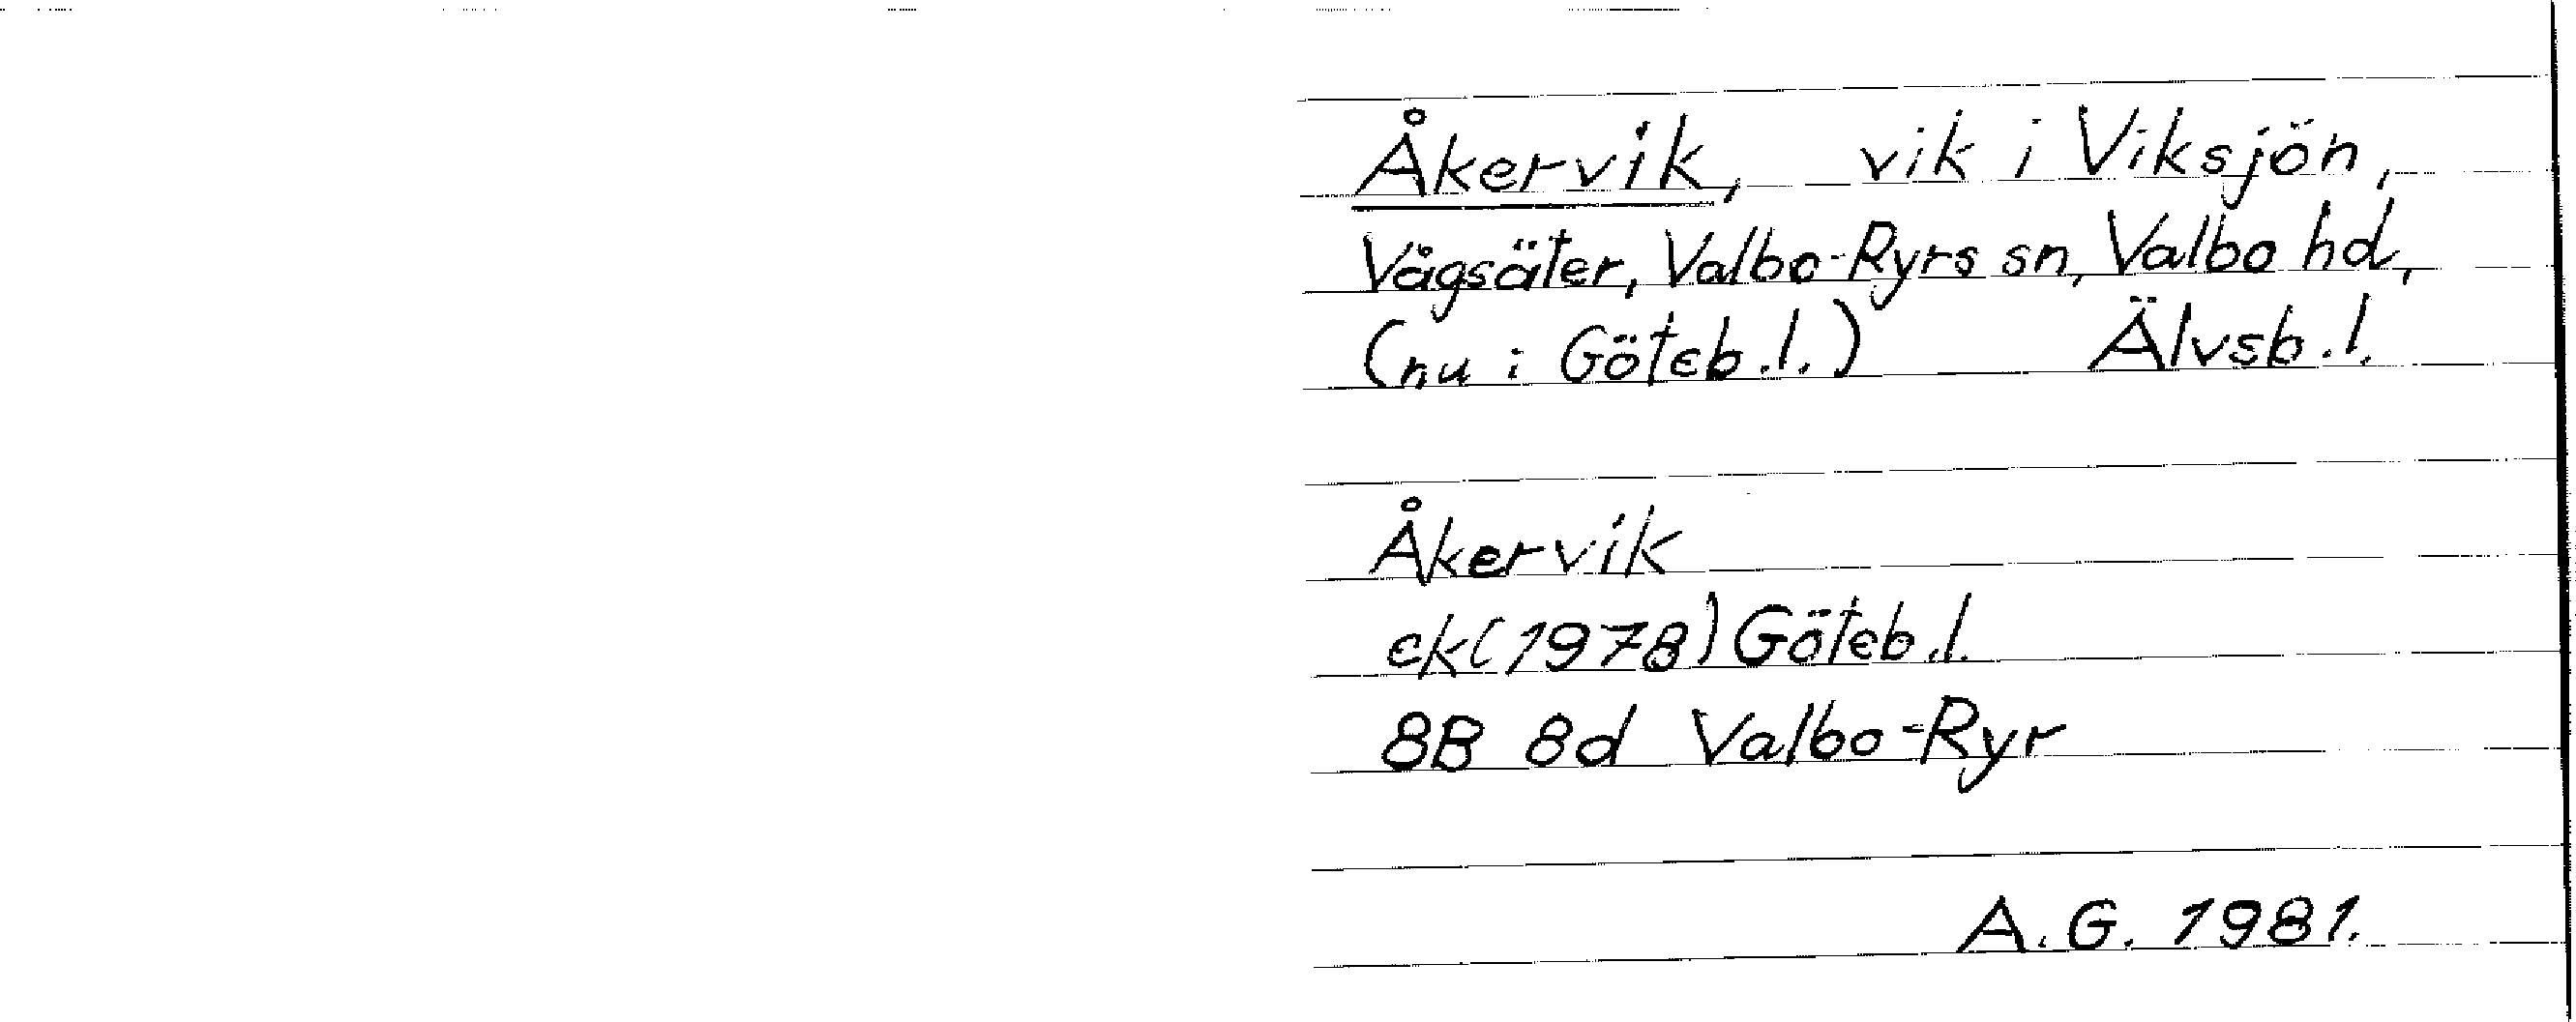 Åkervik, vik i Viksjön,
Vågsäter, Valbo-Ryrs sn, Valbo hd,
(nu i Göteb.l.) Älvsb.l.
Åkervik
ek(1978) Göteb.l.
8B 8d Valbo-Ryr
A.G. 1981.